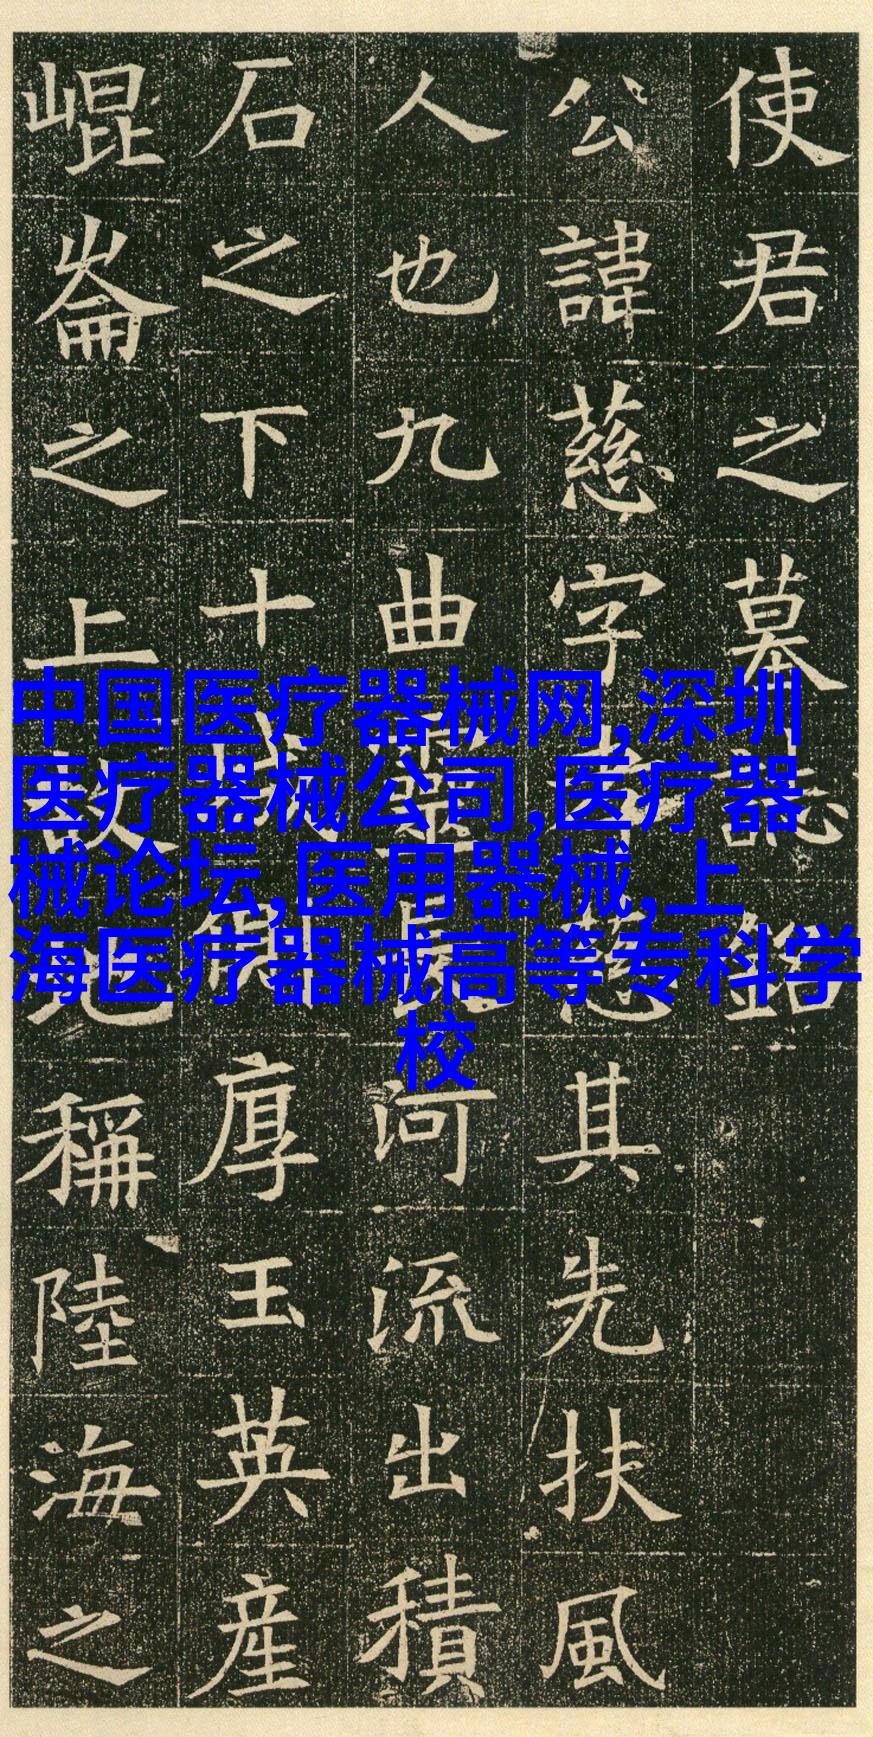 使君之墓誌銘
公諱慈字其先扶風
人也九曲河流出積
石之下十厚玉英産
崐崘之上故地稱陸海之
中国医疗器械网,深圳
医疗器械公司,医疗器
械论坛,医用器械,上
海医疗器械高等专科学
校